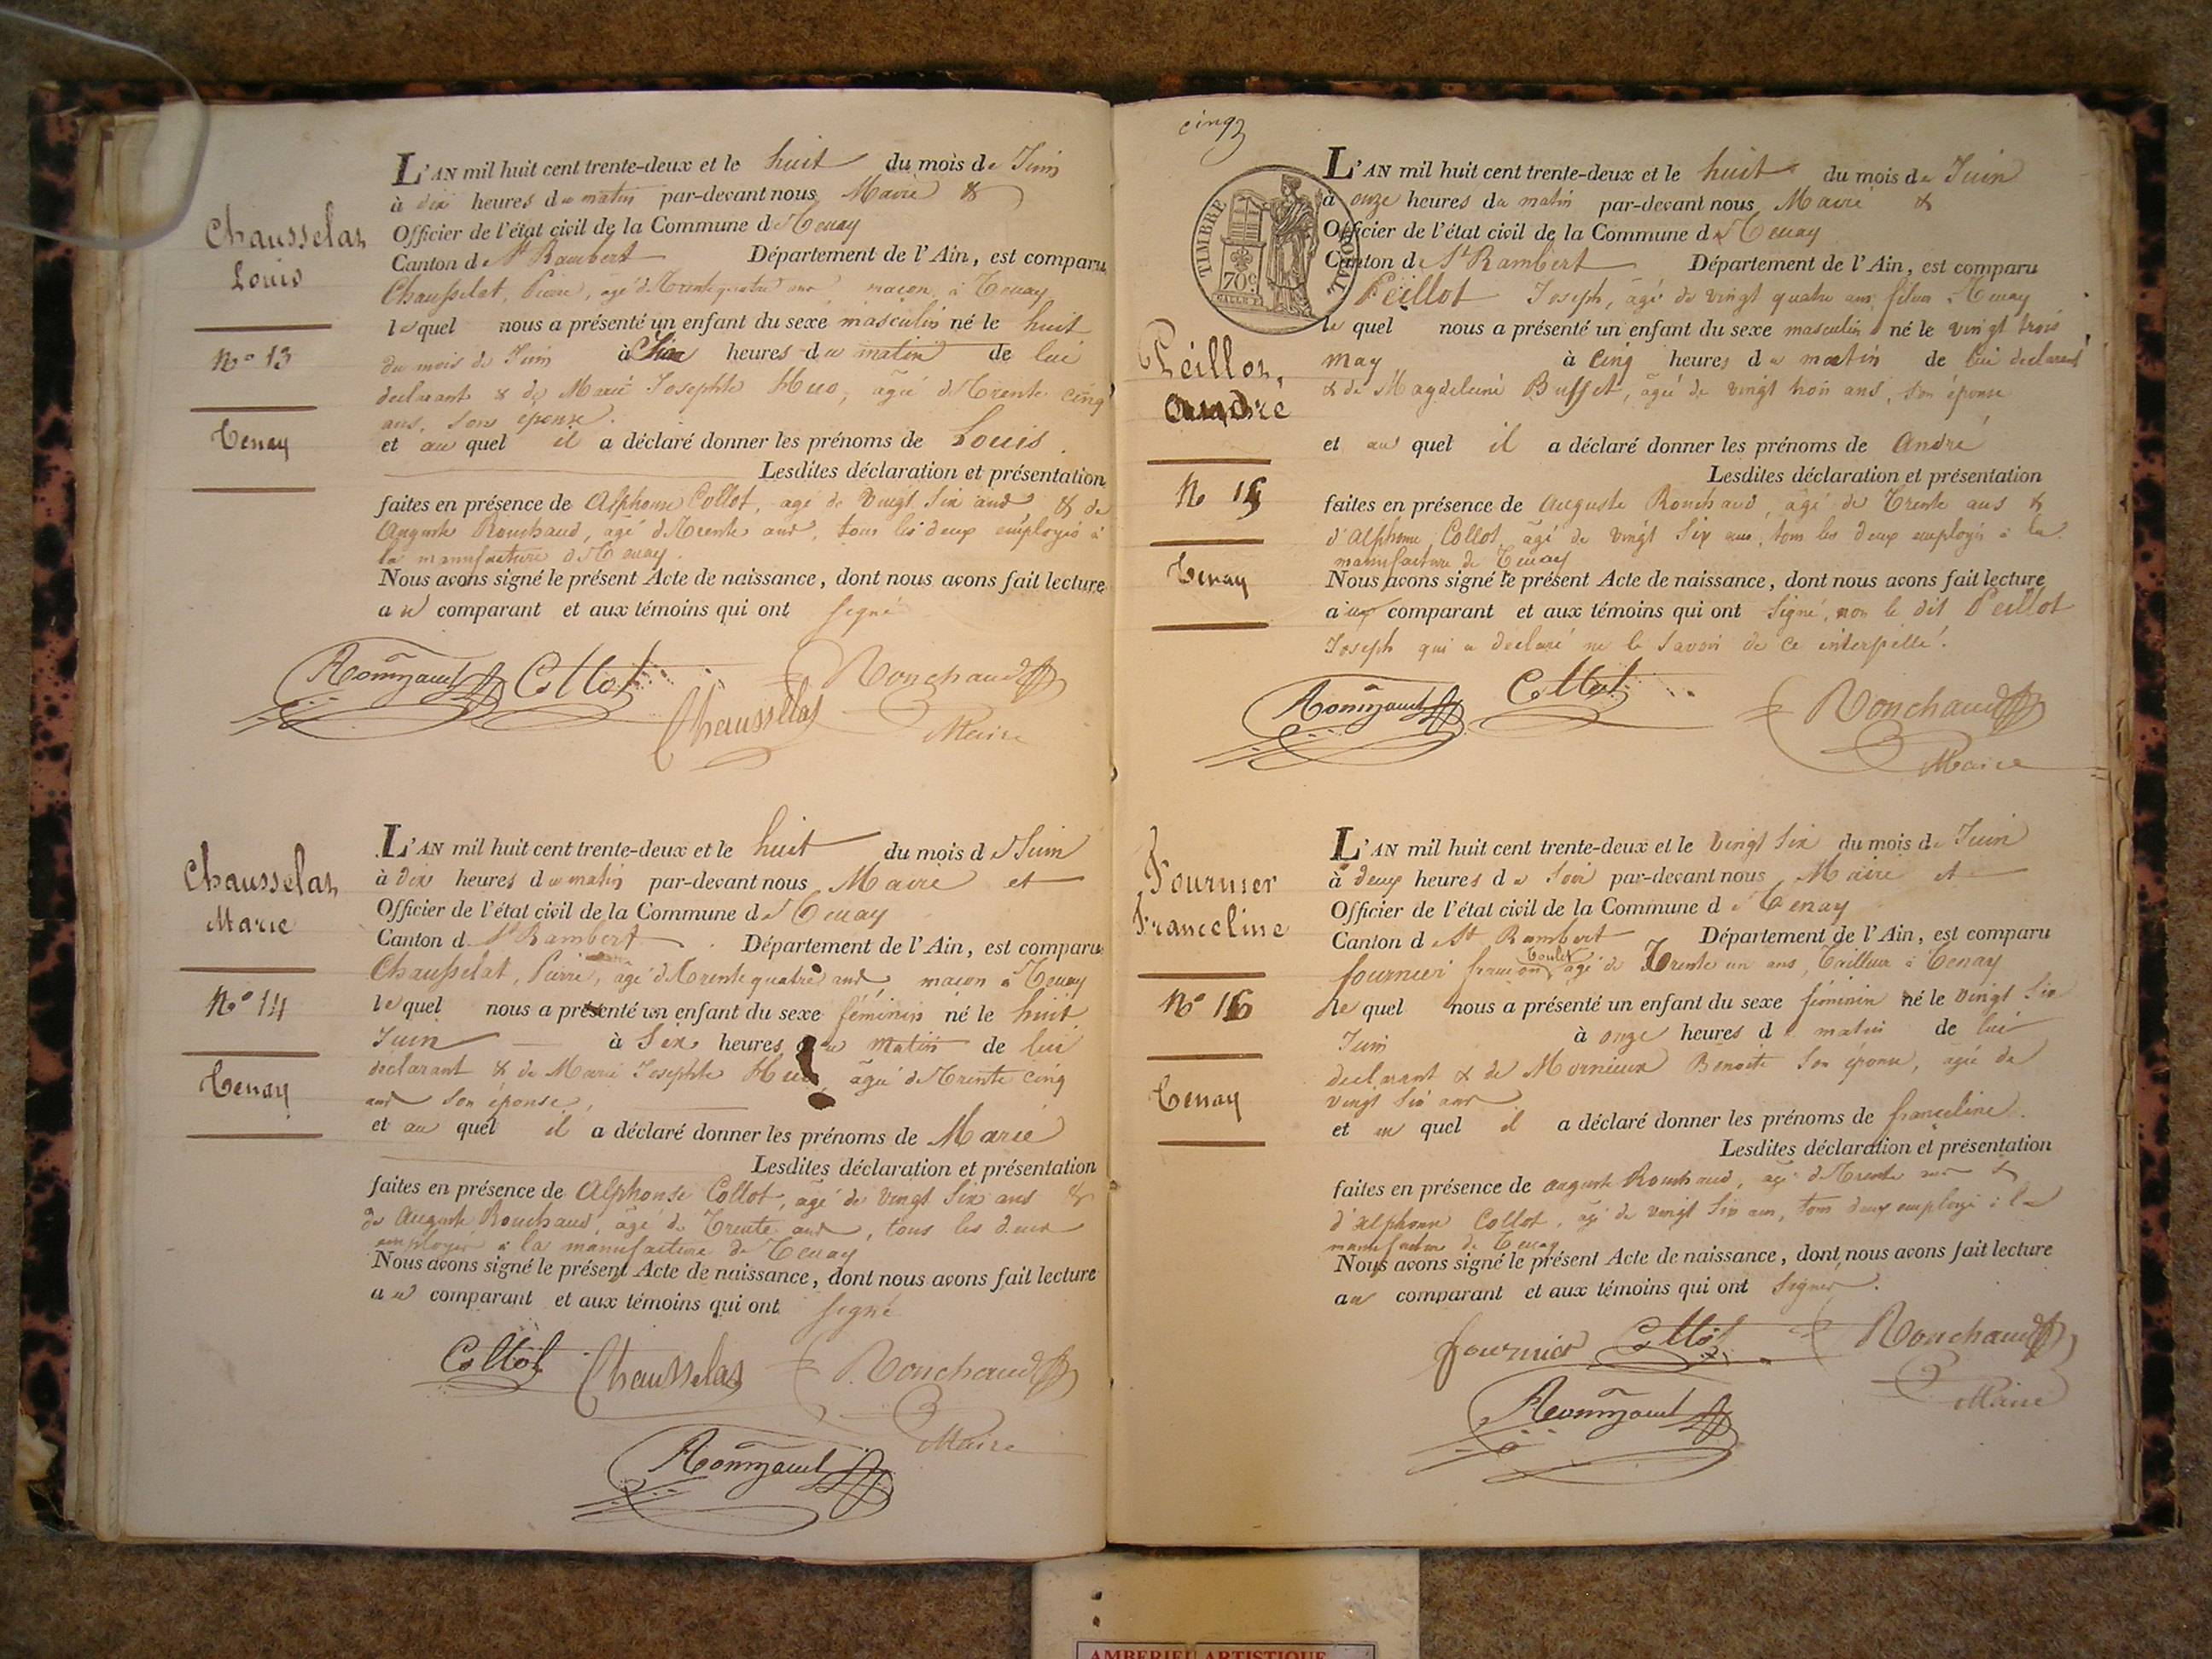 Chausselat
Louis
No 13
Tenay
L'AN mil huit cent trente-deux et le huit du mois de Juin
à dix heures du matin par-devant nous Maire &
Officier de l'état civil de la Commune de Tenay
Canton de St Rambert Département de l'Ain, est comparu
Chausselat, Pierre, agé de Trente quatre ans, maçon, à Tenay
lequel nous a présenté un enfant du sexe masculin né le huit
du mois de Juin à heures du matin de lui
declarant & de Marie Josephte Huo, agée de Trente cinq
ans, son épouse.
et au quel il a déclaré donner les prénoms de Louis.
Lesdites déclaration et présentation
faites en présence de Alphonse Collot, agé de vingt six ans & de
Auguste Ronchaud, agé de Trente ans, tous les deux employés à
la manufacture de Tenay.
Nous avons signé le présent Acte de naissance, dont nous avons fait lecture
au comparant et aux témoins qui ont signé
Collot
Ronchaud
Chausselas
Maire
Chausselat
Marie
No 14
Tenay
L'AN mil huit cent trente-deux et le huit du mois de Juin
à dix heures du matin par-devant nous Maire et
Officier de l'état civil de la Commune de Tenay
Canton de St Rambert Département de l'Ain, est comparu
Chausselat, Pierre, agé de Trente quatre ans, maçon à Tenay
lequel nous a présenté un enfant du sexe féminin né le huit
Juin à Six heures du matin de lui
déclarant & de Marie Josephte Huo, agée de Trente cinq
ans son épouse,
et au quel il a déclaré donner les prénoms de Marie
Lesdites déclaration et présentation
faites en présence de Alphonse Collot, agé de vingt six ans &
de Auguste Ronchaud, agé de Trente ans, tous les deux
employés à la manufacture de Tenay
Nous avons signé le présent Acte de naissance, dont nous avons fait lecture
au comparant et aux témoins qui ont signé
Collot Chausselas Ronchaud
Maire
cinq
TIMBRE ROYAL
70c.
Peillot,
André
No 15
Tenay
L'AN mil huit cent trente-deux et le huit du mois de Juin
à onze heures du matin par-devant nous Maire &
Officier de l'état civil de la Commune de Tenay
Canton de St Rambert Département de l'Ain, est comparu
Peillot Joseph, agé de vingt quatre ans, fileur à Tenay
lequel nous a présenté un enfant du sexe masculin né le vingt trois
may à cinq heures du matin de lui declarant
& de Magdeleine Buffet, agée de vingt trois ans, son épouse
et au quel il a déclaré donner les prénoms de André
Lesdites déclaration et présentation
faites en présence de Auguste Ronchaud, agé de Trente ans &
d'Alphonse Collot, agé de vingt six ans, tous les deux employés à la
manufacture de Tenay
Nous avons signé le présent Acte de naissance, dont nous avons fait lecture
aux comparant et aux témoins qui ont signé, non le dit Peillot
Joseph qui a declaré ne le savoir de ce interpellé.
Collot
Ronchaud
Maire
Fournier
Franceline
No 16
Tenay
L'AN mil huit cent trente-deux et le vingt six du mois de Juin
à deux heures du soir par-devant nous Maire et
Officier de l'état civil de la Commune de Tenay
Canton de St Rambert Département de l'Ain, est comparu
fournier agé de Trente un ans, Tailleur à Tenay
lequel nous a présenté un enfant du sexe féminin né le vingt six
Juin à onze heures d matin de lui
declarant & de Mornieux Benoite son épouse, agée de
vingt six ans
et au quel il a déclaré donner les prénoms de franceline.
Lesdites déclaration et présentation
faites en présence de auguste Ronchaud, agé de Trente ans &
d'alphonse Collot, agé de vingt six ans, tous deux employé à la
manufacture de Tenay
Nous avons signé le présent Acte de naissance, dont nous avons fait lecture
au comparant et aux témoins qui ont signer.
fournier Collot Ronchaud
Maire
AMBERIEU ARTISTIQUE